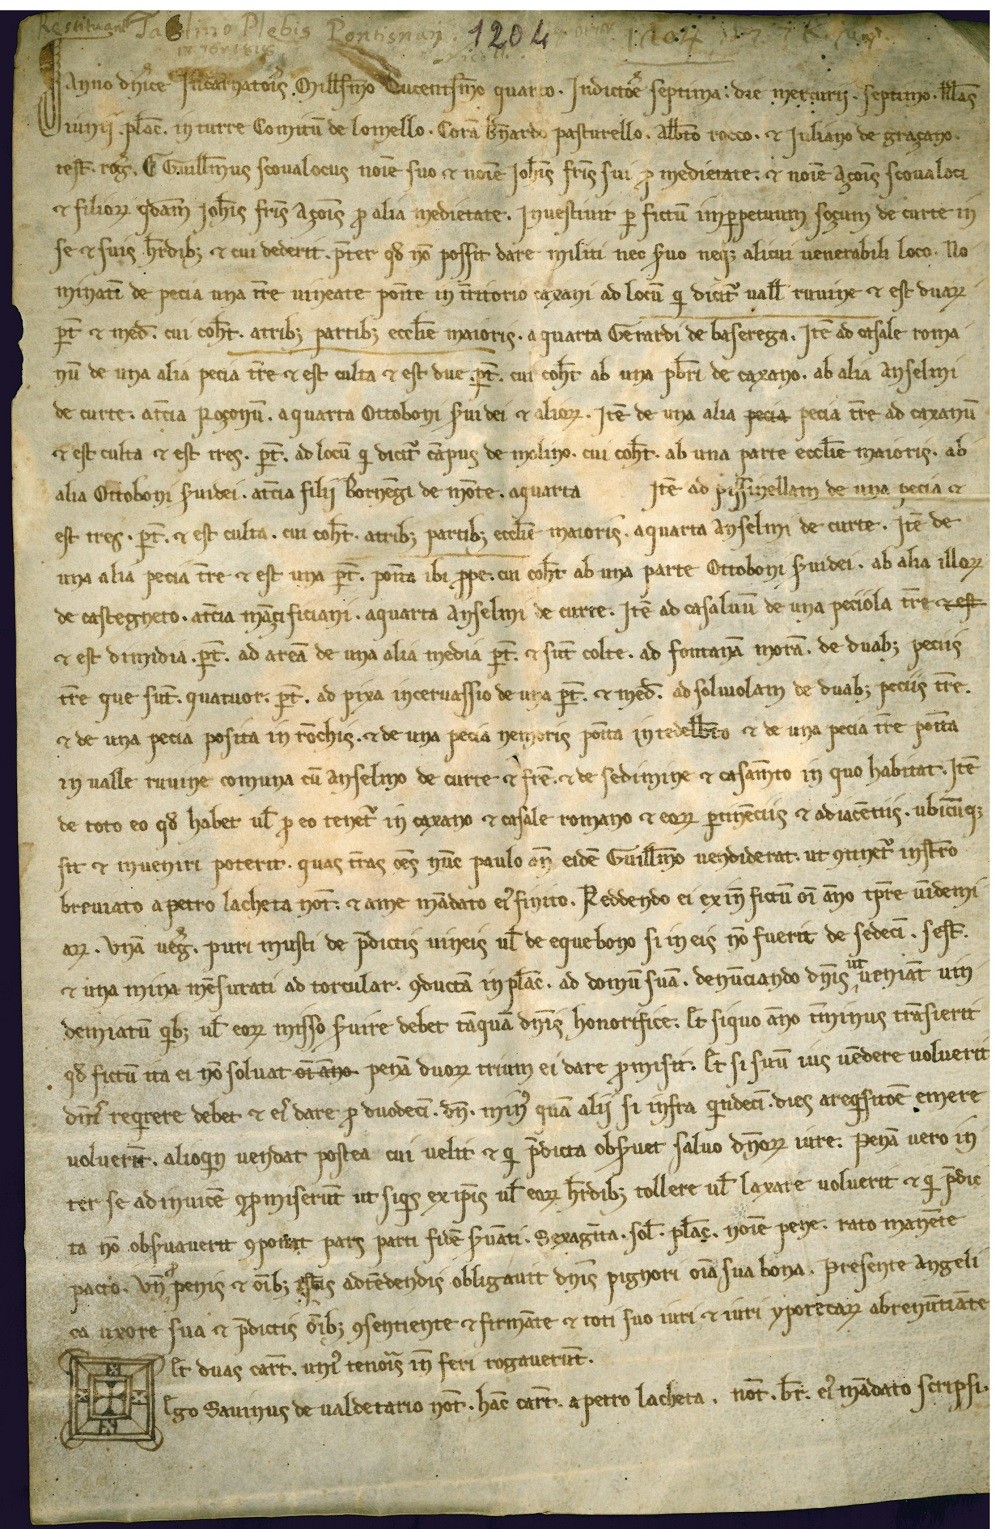 Restituant Taclino Plebis Pontisnur. 1204
Anno dn̄ice Incarnatōis. Mill̄simo Ducentesīmo quarto. Indictōe septima. die mercurii. septimo. kl̄as
iunii. plāc. in turre Comitū de lomello. Corā bn̄ardo pasturello. alb̄to rocco. et Iuliano de graçano.
test̄. rog̃. Guill̄mus scoualocus noīe suo et noīe Joh̄is fr̄is sui p̄ medietate. et noīe Açōis scoualoci
et filioꝝ qōdam Joh̄is fr̄is Açōis p̄ alia medietate. Inuestiuit p̱ fictū imp̱petuum soçum de curte in
se et suis h̄rdibꝫ et cui dederit. p̄ter qđ nō possit dare militi nec s̄uo neqꝫ alicui uenerabili loco. No
minatī de pecia una t̄re uineate poīte in t̄ritorio caxani ad locū q̇ dicit̃ uall̄ ruuine et est duaꝝ
p̱t̄ et med̄. cui coh̄t. atribꝫ partibꝫ ecclēie maioris. a quarta Gerardi de baserega. Itē ad casale roma
nū de una alia pecia t̄re et est culta et est due. p̱t̄. cui coh̄t ab una pb̄ri de caxano. ab alia Anselmi
de curte. at̄cia Roçonū. a quarta Ottoboni s̄uidei et alioꝝ. Itē de una alia pecia pecia t̄re ad caxanū
et est culta et est tres. p̱t̄. ad locū q̇ dicit̃ cāpus de molino. cui coh̄t. ab una parte ecclēie maioris. ab
alia Ottoboni s̄uidei. at̄cia filii borneñgi de mōte. aquarta Itē ad pissinellam de una pecia et
est tres. p̱t̄. et est culta. cui coh̄t. atribꝫ partibꝫ ecclēie maioris. aquarta Anselmi de curte. Itē de
una alia pecia t̄re et est una p̱t̄. poīta ibi p̱pe. cui coh̄t ab una parte Ottoboni s̄uidei. ab alia illoꝝ
de castegneto. at̄cia māgificiani. aquarta Anselmi de curte. Itē ad casaluū de una peciola t̄re et est
et est dimidia. p̱t̄. ad areā de una alia media p̱t̄. et sūt colte. ad fontanā morā. de duabꝫ peciis
t̄re que sūt. quatuor. p̱t̄. ad pixa incervassio de una p̱t̄. et med̄. ad soluiolam de duabꝫ peciis t̄re.
et de una pecia posita in rōchis. et de una pecia nemoris poīta in tedelb̄to et de una pecia t̄re poīta
in ualle ruuine comuna cū Anselmo de curte et fr̄e. et de sedimine et casam̄to in quo habitat. Itē
de toto eo qđ habet ul̄ p̄ eo tenet̃ in caxano et casale romano et eoꝝ p̱tinēciis et adiacētiis. ubicūqꝫ
sit et inueniri poterit. quas t̄ras oēs nūc paulo an̄ eidē Guill̄mo uendiderat. ut ꝯtinet̃ inst̄ro
breuiato a petro lacheta not̄. et ame mādato ei᾽ finito. Reddendo ei exīn fictū oī āno tp̄re uīdemi
aꝝ. Vnā ueg̃. puri musti de p̄dictis uineis ul̄ de eque bono si in eis nō fuerit de sedeci. sest̄.
et una mina mēsurati ad torcular. ꝯductā in plāc. ad domū suā. denūciando dn̄is ut ueniāt uin
demiatū qibꝫ ul̄ eoꝝ misso s̄uire debet tāquā dn̄is honorifice. Et siquo āno t̄minus trāsierit
qđ fictū ita ei nō soluat oī āno penā duoꝝ trium ei dare p̄misit. Et si suū ius uēdere uoluerit
dn̄i reqirere debet et ei᾽ dare p̄ duodeci. dn̄. min᾽ quā alii si infra qindeci. dies areqisitōe emere
uoluerīt. alioqin uendat postea cui uelit et q̇ p̄dicta obs̄uet saluo dn̄oꝝ iure. Penā uero in
ter se adinuicē ꝯp̄miserūt ut siqis ex ip̄is ul̄ eoꝝ h̄rdibꝫ tollere ul̄ laxare uoluerit et q̇ p̄dic
ta nō obs̄uauerit ꝯponat pars parti fidē s̄uāti. Sexagīta. sol̄. plāç. noīe pene. rato manēte
pacto. Vn̄ p̄ penis et oībꝫ istis adtēdendis obligauit dn̄is pignori oīa sua bona. Presente Angeli
ca uxore sua et p̄dictis oībꝫ ꝯsentiente et firmāte et toti suo iuri et iuri ypotecaꝝ abrenūtiāte
Et duas cart̄. uni᾽ tenoris īn fieri rogauerūt.
Ego Sauinus de ualdetario not̄. hāc cart̄. a petro lacheta. not̄. br̄. ei᾽ mādato scripsi.